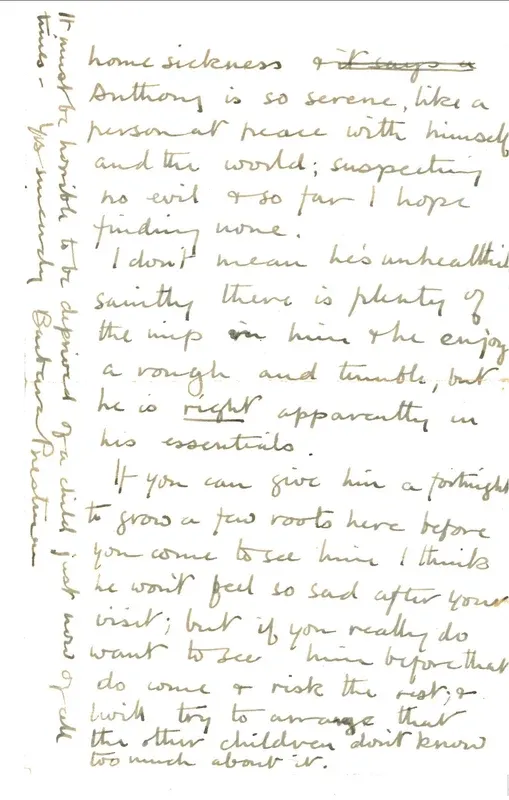 home sickness & it says a
Anthony is so serene, like a
person at peace with himself
and the world; suspecting
no evil & so far I hope
finding none.
I don't mean he's unhealthil
saintly there is plenty of
the imp in him & he enjoy
a rough and tumble, but
he is right apparently in
his essentials.
If you can give him a fortnight
to grow a few roots here before
you come to see him I think
he won't feel so sad after your
visit; but if you really do
want to see him before that
do come & risk the rest; &
I will try to arrange that
the other children don't know
too much about it.
It must be horrible to be deprived of a child just now of all
times - Yrs sincerely Barbara Priestman